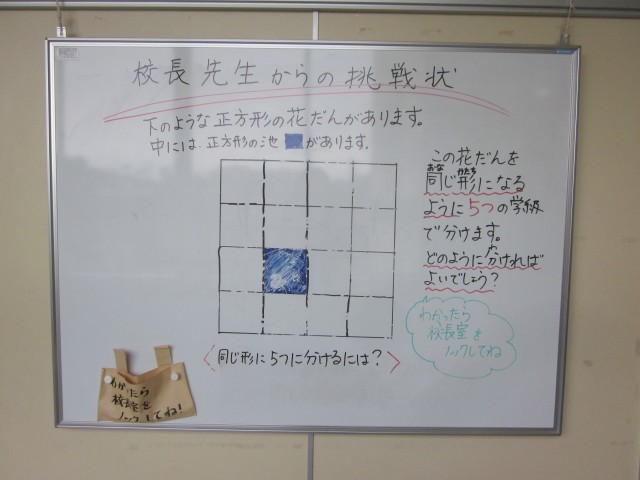 校長先生からの挑戦状
下のような正方形の花だんがあります。
中には、正方形の池 があります。
この花だんを
おな かたち
同じ形になる
ように5つの学級
で分けます。
わ
どのように分ければ
よいでしょう?
わかったら
校長室を
ノックしてね
同じ形に5つに分けるには?
わかったら
校長室を
ノックしてね!